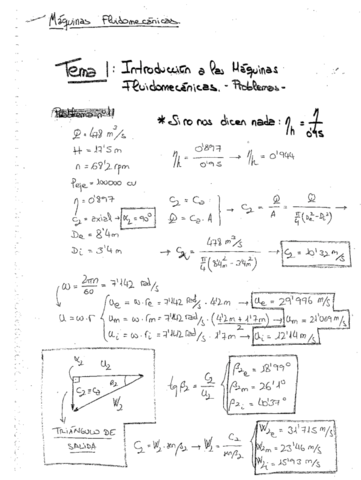 Máquinas Fluidomecánicas.
Tema 1: Introducción a las Máquinas
Fluidomecánicas. - Problemas -
Problema 1
* Si no nos dicen nada: η_h = η / 0'95
Q = 478 m³/s
H = 17'5 m
n = 68'2 rpm
Peje = 100000 CV
η = 0'897
C₂ = axial → α₂ = 90°
De = 8'4 m
Di = 3'4 m
η_h = 0'897 / 0'95 → η_h = 0'944
C₂ = C₀
Q = C₀ · A
→ C₂ = Q / A = Q / (π/4 (De² - Di²))
→ C₂ = 478 m³/s / (π/4 (8'4² m² - 3'4² m²)) → C₂ = 10'32 m/s
ω = 2πn / 60 = 7'142 rad/s
u = ω · r
u_e = ω · r_e = 7'142 rad/s · 4'2 m → u_e = 29'996 m/s
u_m = ω · r_m = 7'142 rad/s · (4'2 m + 1'7 m) / 2 → u_m = 21'069 m/s
u_i = ω · r_i = 7'142 rad/s · 1'7 m → u_i = 12'14 m/s
W₂
U₂
C₂ = C₀
β₂
W₂
TRIÁNGULO DE
SALIDA
tg β₂ = C₂ / U₂
β₂e = 18'99°
β₂m = 26'1°
C₂ = W₂ · sen β₂ → W₂ = C₂ / sen β₂
W₂e = 31'715 m/s
W₂m = 23'46 m/s
W₂i = 15'93 m/s